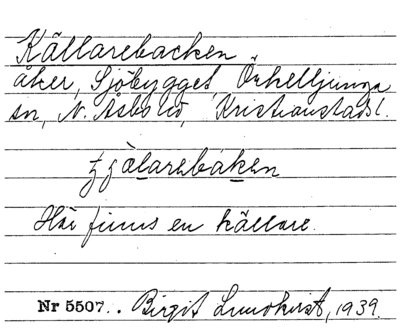 Källarebacken
åker, Sjöbygget, Örkelljunga
sn, N. Åsbo hd, Kristianstads l.
källarebaken
Här finns en källare.
Nr 5507. . Birgit Lundkvist, 1939.